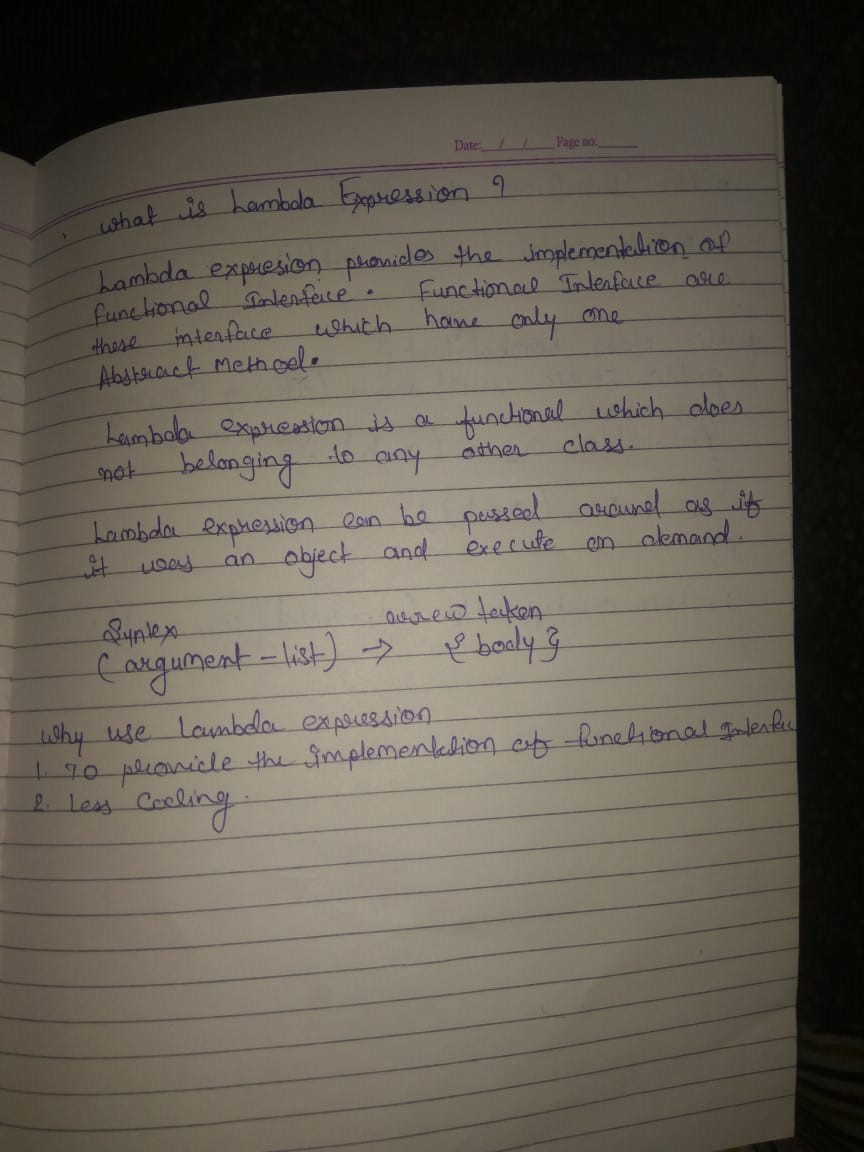 Date: / / Page no:
what is Lambda Expression ?
Lambda expresion provides the implementation of
functional Interface. Functional Interface are
these interface which have only one
Abstract Method.
Lambda expression is a functional which does
not belonging to any other class.
Lambda expression can be passed around as if
it was an object and execute on demand.
Syntex arrow token
(argument-list) → {body}
Why use Lambda expression
1. To provide the implementation of functional Interfac
2. Less Coding.